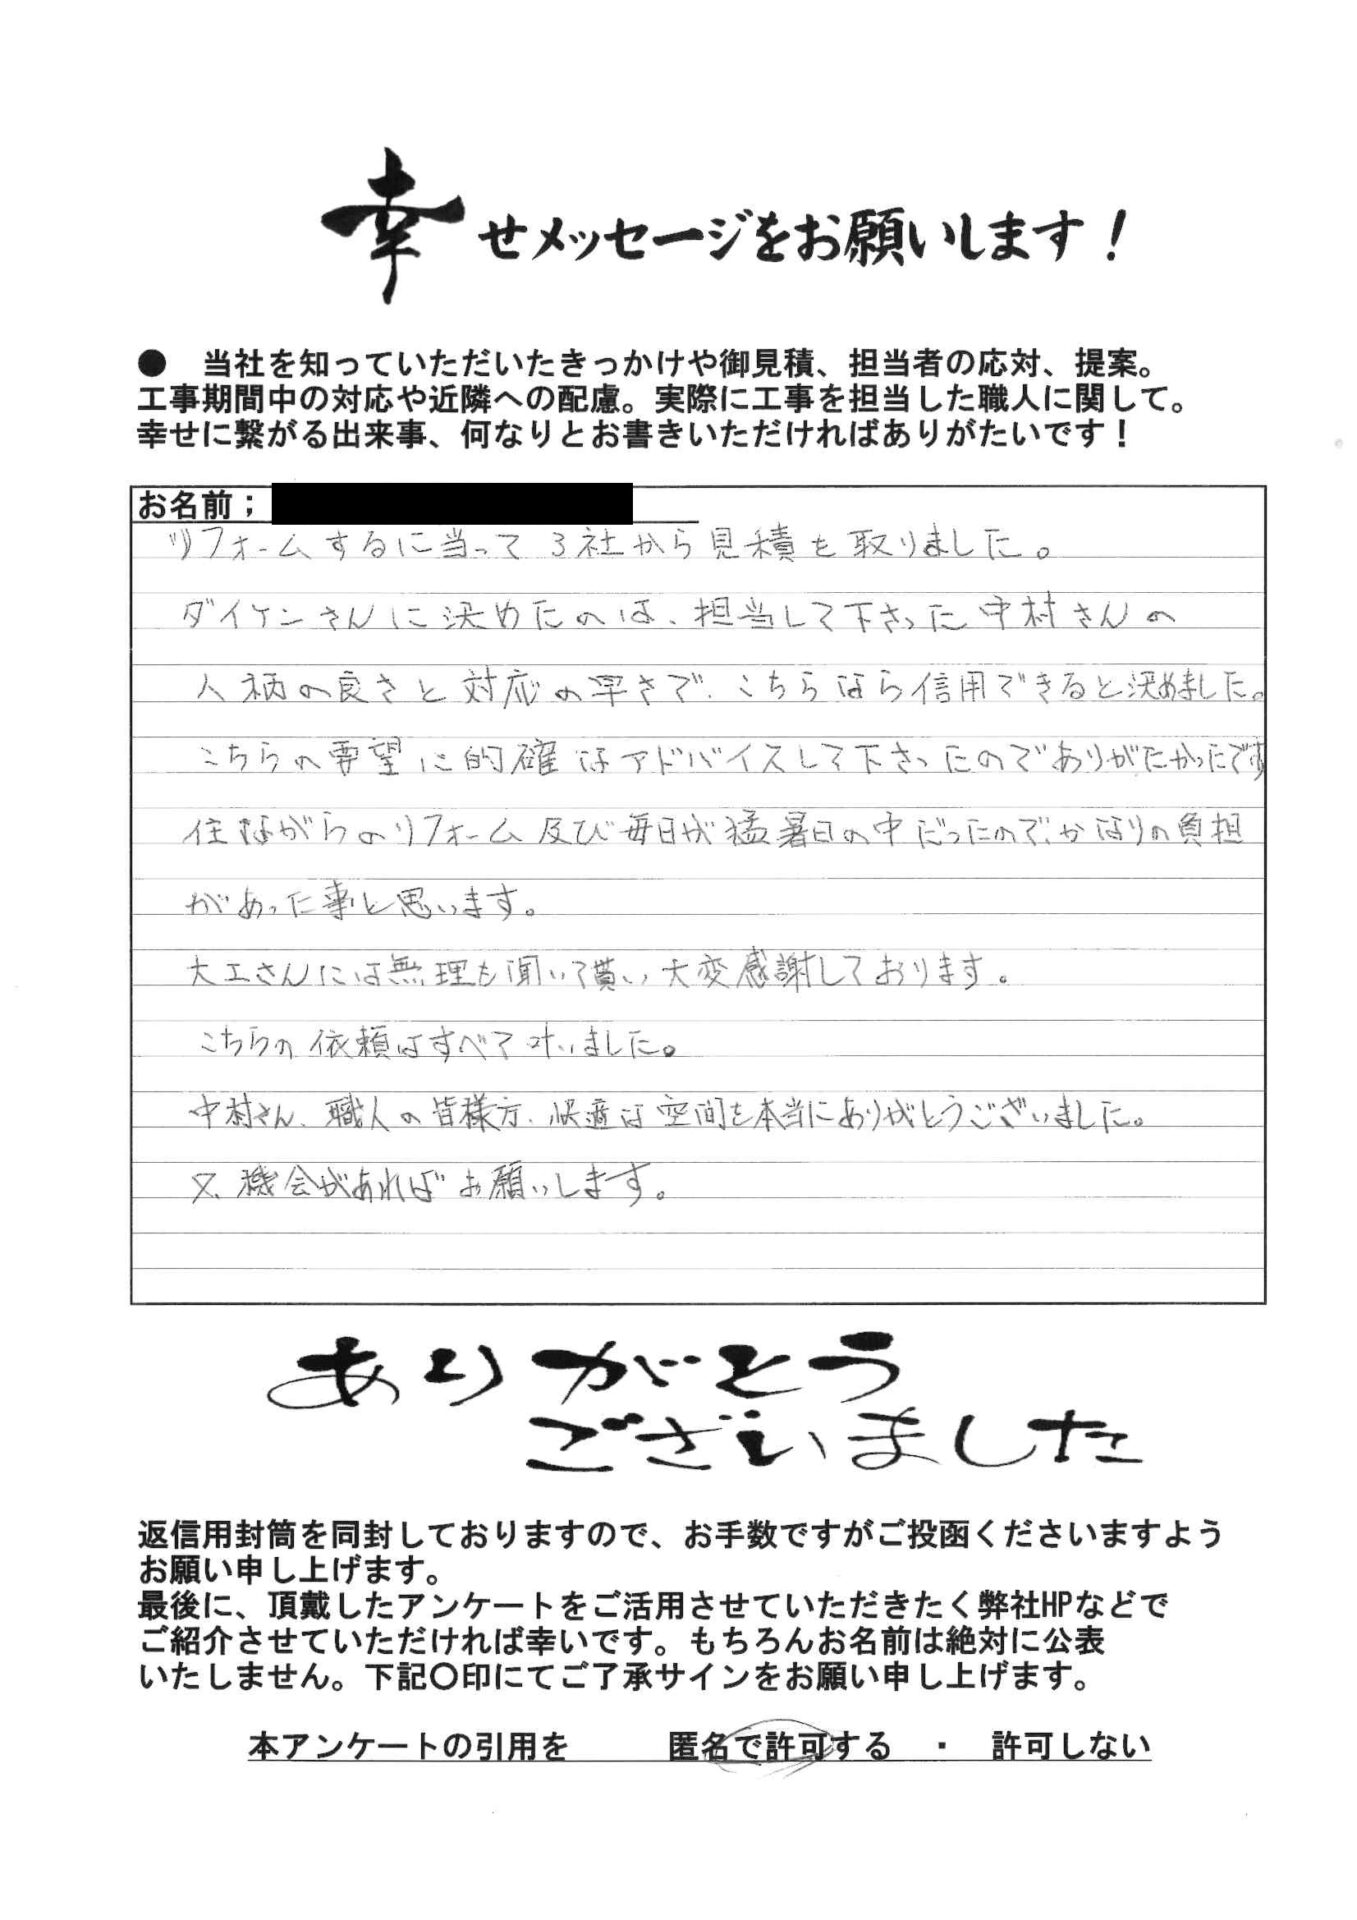 幸せメッセージをお願いします！
●　当社を知っていただいたきっかけや御見積、担当者の応対、提案。
工事期間中の対応や近隣への配慮。実際に工事を担当した職人に関して。
幸せに繋がる出来事、何なりとお書きいただければありがたいです！
お名前；
リフォームするに当って3社から見積を取りました。
ダイケンさんに決めたのは、担当して下さった中村さんの
人柄の良さと対応の早さで、こちらなら信用できると決めました。
こちらの要望に的確なアドバイスして下さったのでありがたかったです
住ながらのリフォーム及び毎日が猛暑日の中だったので、かなりの負担
があった事と思います。
大工さんには無理も聞いて貰い大変感謝しております。
こちらの依頼はすべて叶いました。
中村さん、職人の皆様方、快適な空間を本当にありがとうございました。
又、機会があればお願いします。
ありがとう
ございました
返信用封筒を同封しておりますので、お手数ですがご投函くださいますよう
お願い申し上げます。
最後に、頂戴したアンケートをご活用させていただきたく弊社HPなどで
ご紹介させていただければ幸いです。もちろんお名前は絶対に公表
いたしません。下記〇印にてご了承サインをお願い申し上げます。
本アンケートの引用を　　　匿名で許可する　・　許可しない